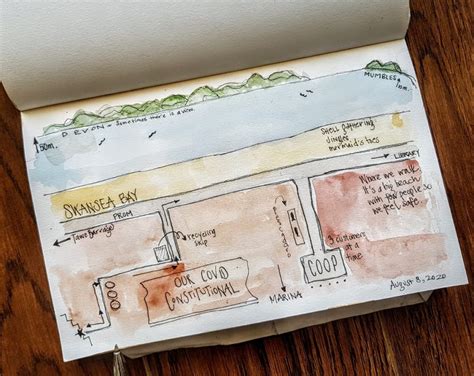 DEVON - Sometimes there is a view.
MUMBLES
50m.
1nm.
shell gathering
mermaid's toes
SWANSEA BAY
LIBRARY
PROM
Tawe Barridge
recycling
skip
Where we walk
It's a big beach
with few people so
we feel safe.
3 customers
at a
time
COOP
OUR COVID
CONSTITUTIONAL
MARINA
August 8, 2020